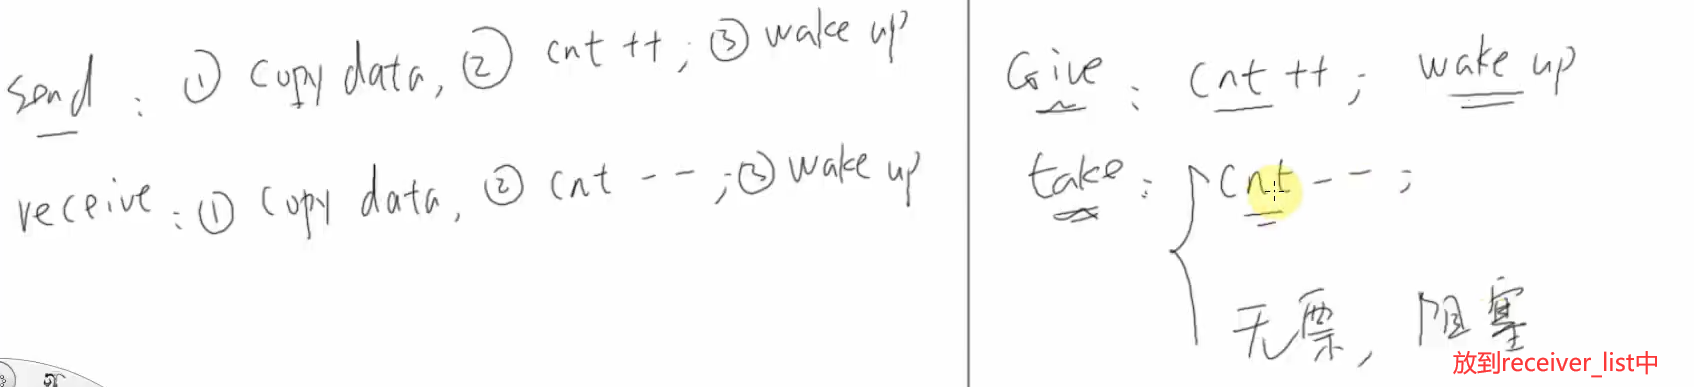 send : ① copy data, ② cnt ++; ③ wake up
receive : ① copy data, ② cnt --; ③ wake up
Give : cnt ++; wake up
take : cnt --;
无票, 阻塞
放到receiver_list中